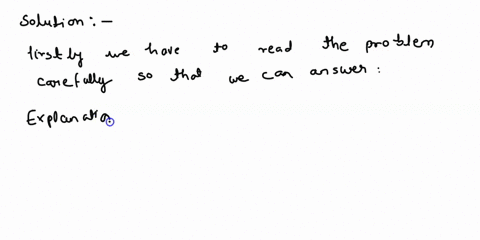 Solution:-
firstly we have to read the problem
carefully so that we can answer:
Explanatio